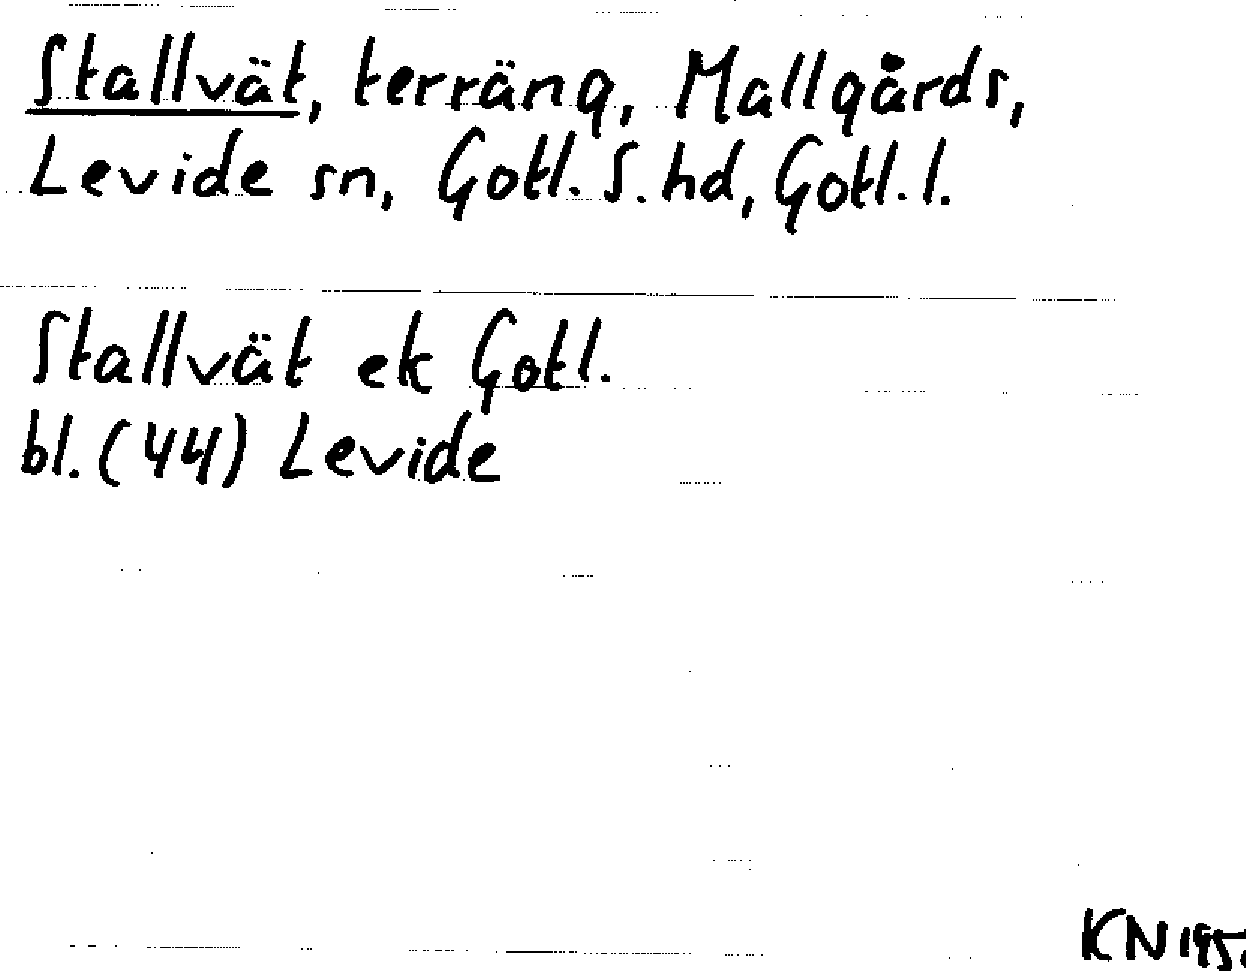 Stallvät, terräng, Mallgårds,
Levide sn, Gotl. S. hd, Gotl. l.
Stallvät ek Gotl.
bl. (44) Levide
KN